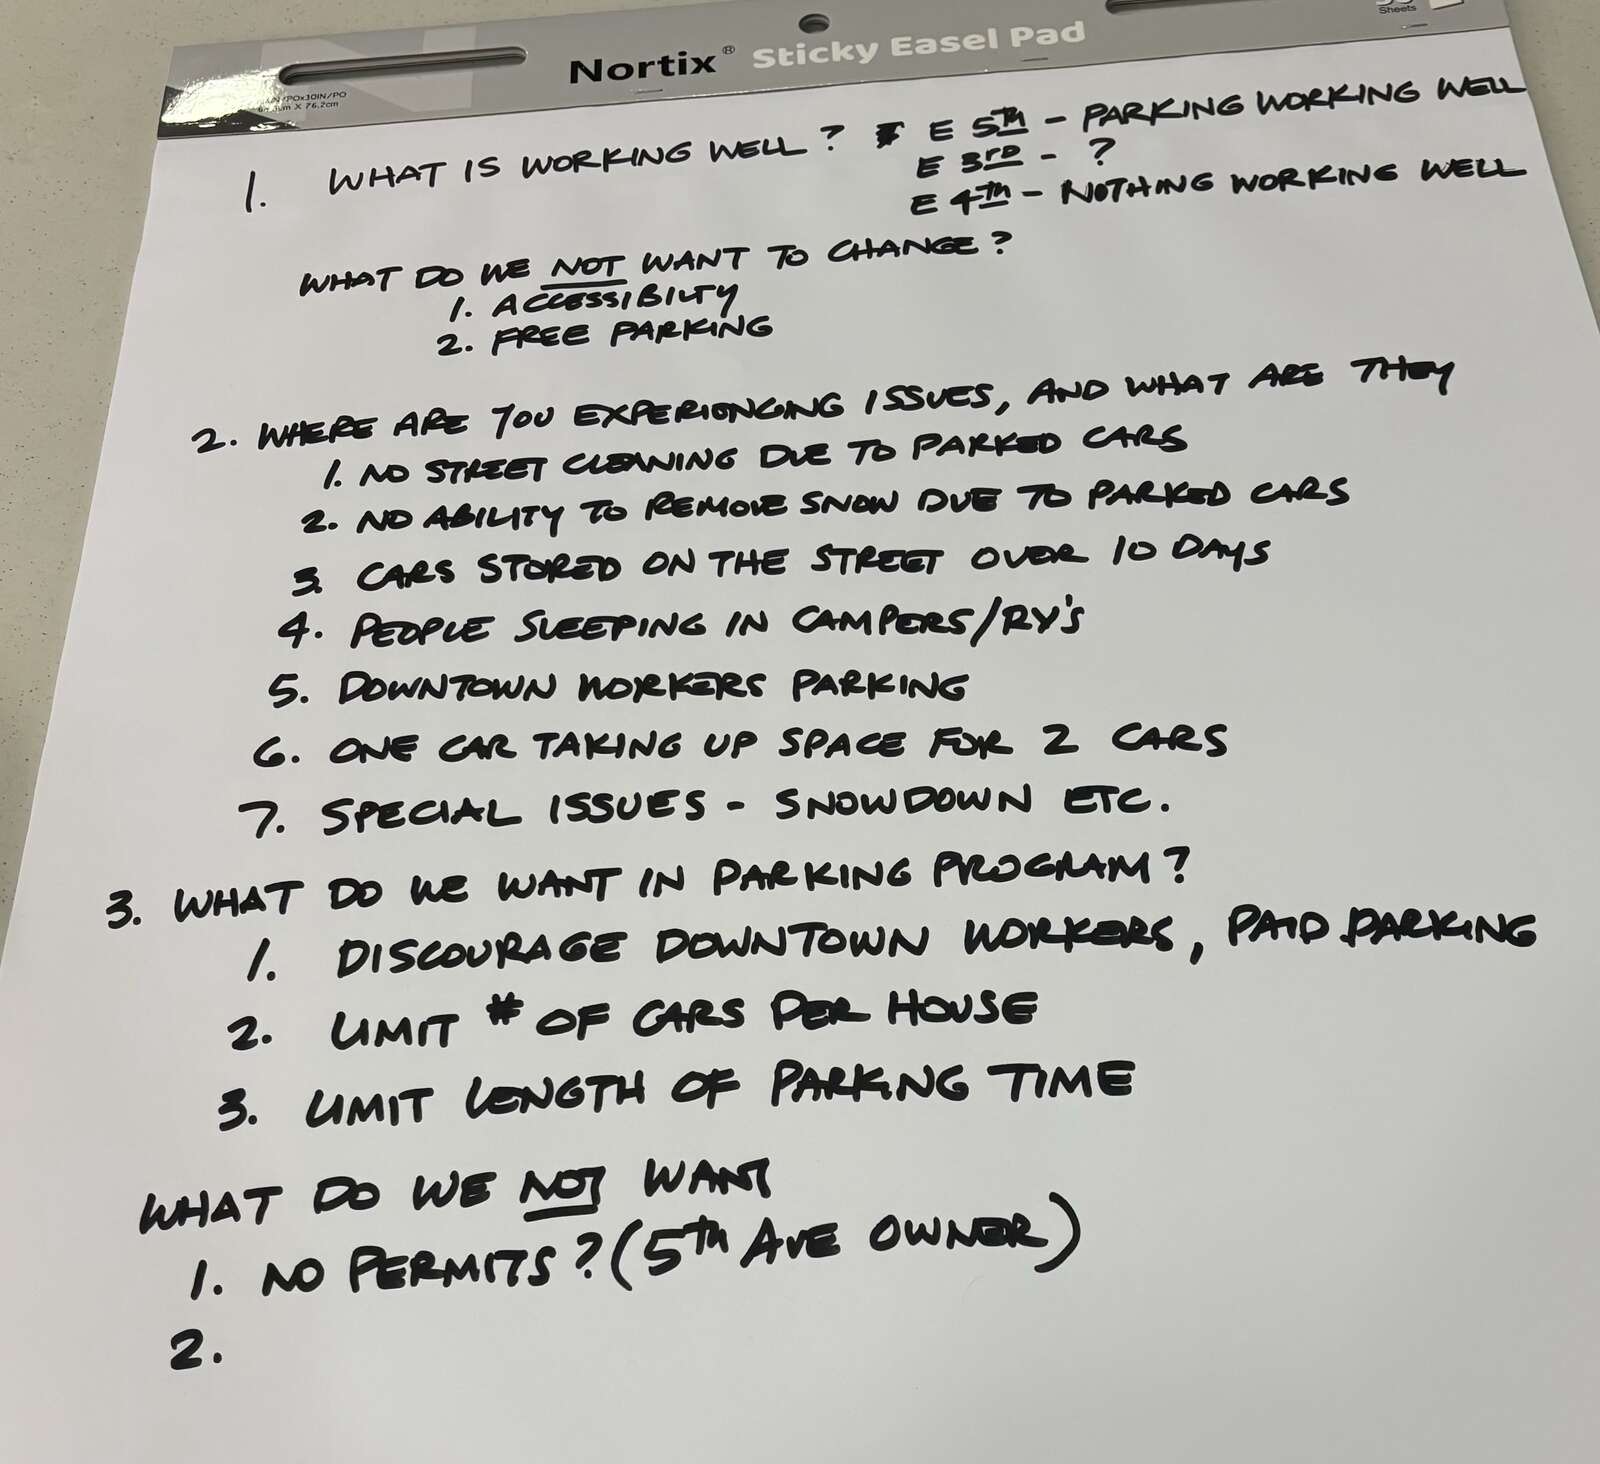 Nortix® Sticky Easel Pad
Sheets
X 76.2cm
1. WHAT IS WORKING WELL? E 5TH - PARKING WORKING WELL
E 3RD - ?
E 4TH - NOTHING WORKING WELL
WHAT DO WE NOT WANT TO CHANGE?
1. ACCESSIBILTY
2. FREE PARKING
2. WHERE ARE YOU EXPERIENCING ISSUES, AND WHAT ARE THEY
1. NO STREET CLEANING DUE TO PARKED CARS
2. NO ABILITY TO REMOVE SNOW DUE TO PARKED CARS
3. CARS STORED ON THE STREET OVER 10 DAYS
4. PEOPLE SLEEPING IN CAMPERS/RV'S
5. DOWNTOWN WORKERS PARKING
6. ONE CAR TAKING UP SPACE FOR 2 CARS
7. SPECIAL ISSUES - SNOWDOWN ETC.
3. WHAT DO WE WANT IN PARKING PROGRAM?
1. DISCOURAGE DOWNTOWN WORKERS, PAID PARKING
2. LIMIT # OF CARS PER HOUSE
3. LIMIT LENGTH OF PARKING TIME
WHAT DO WE NOT WANT
1. NO PERMITS? (5TH AVE OWNER)
2.